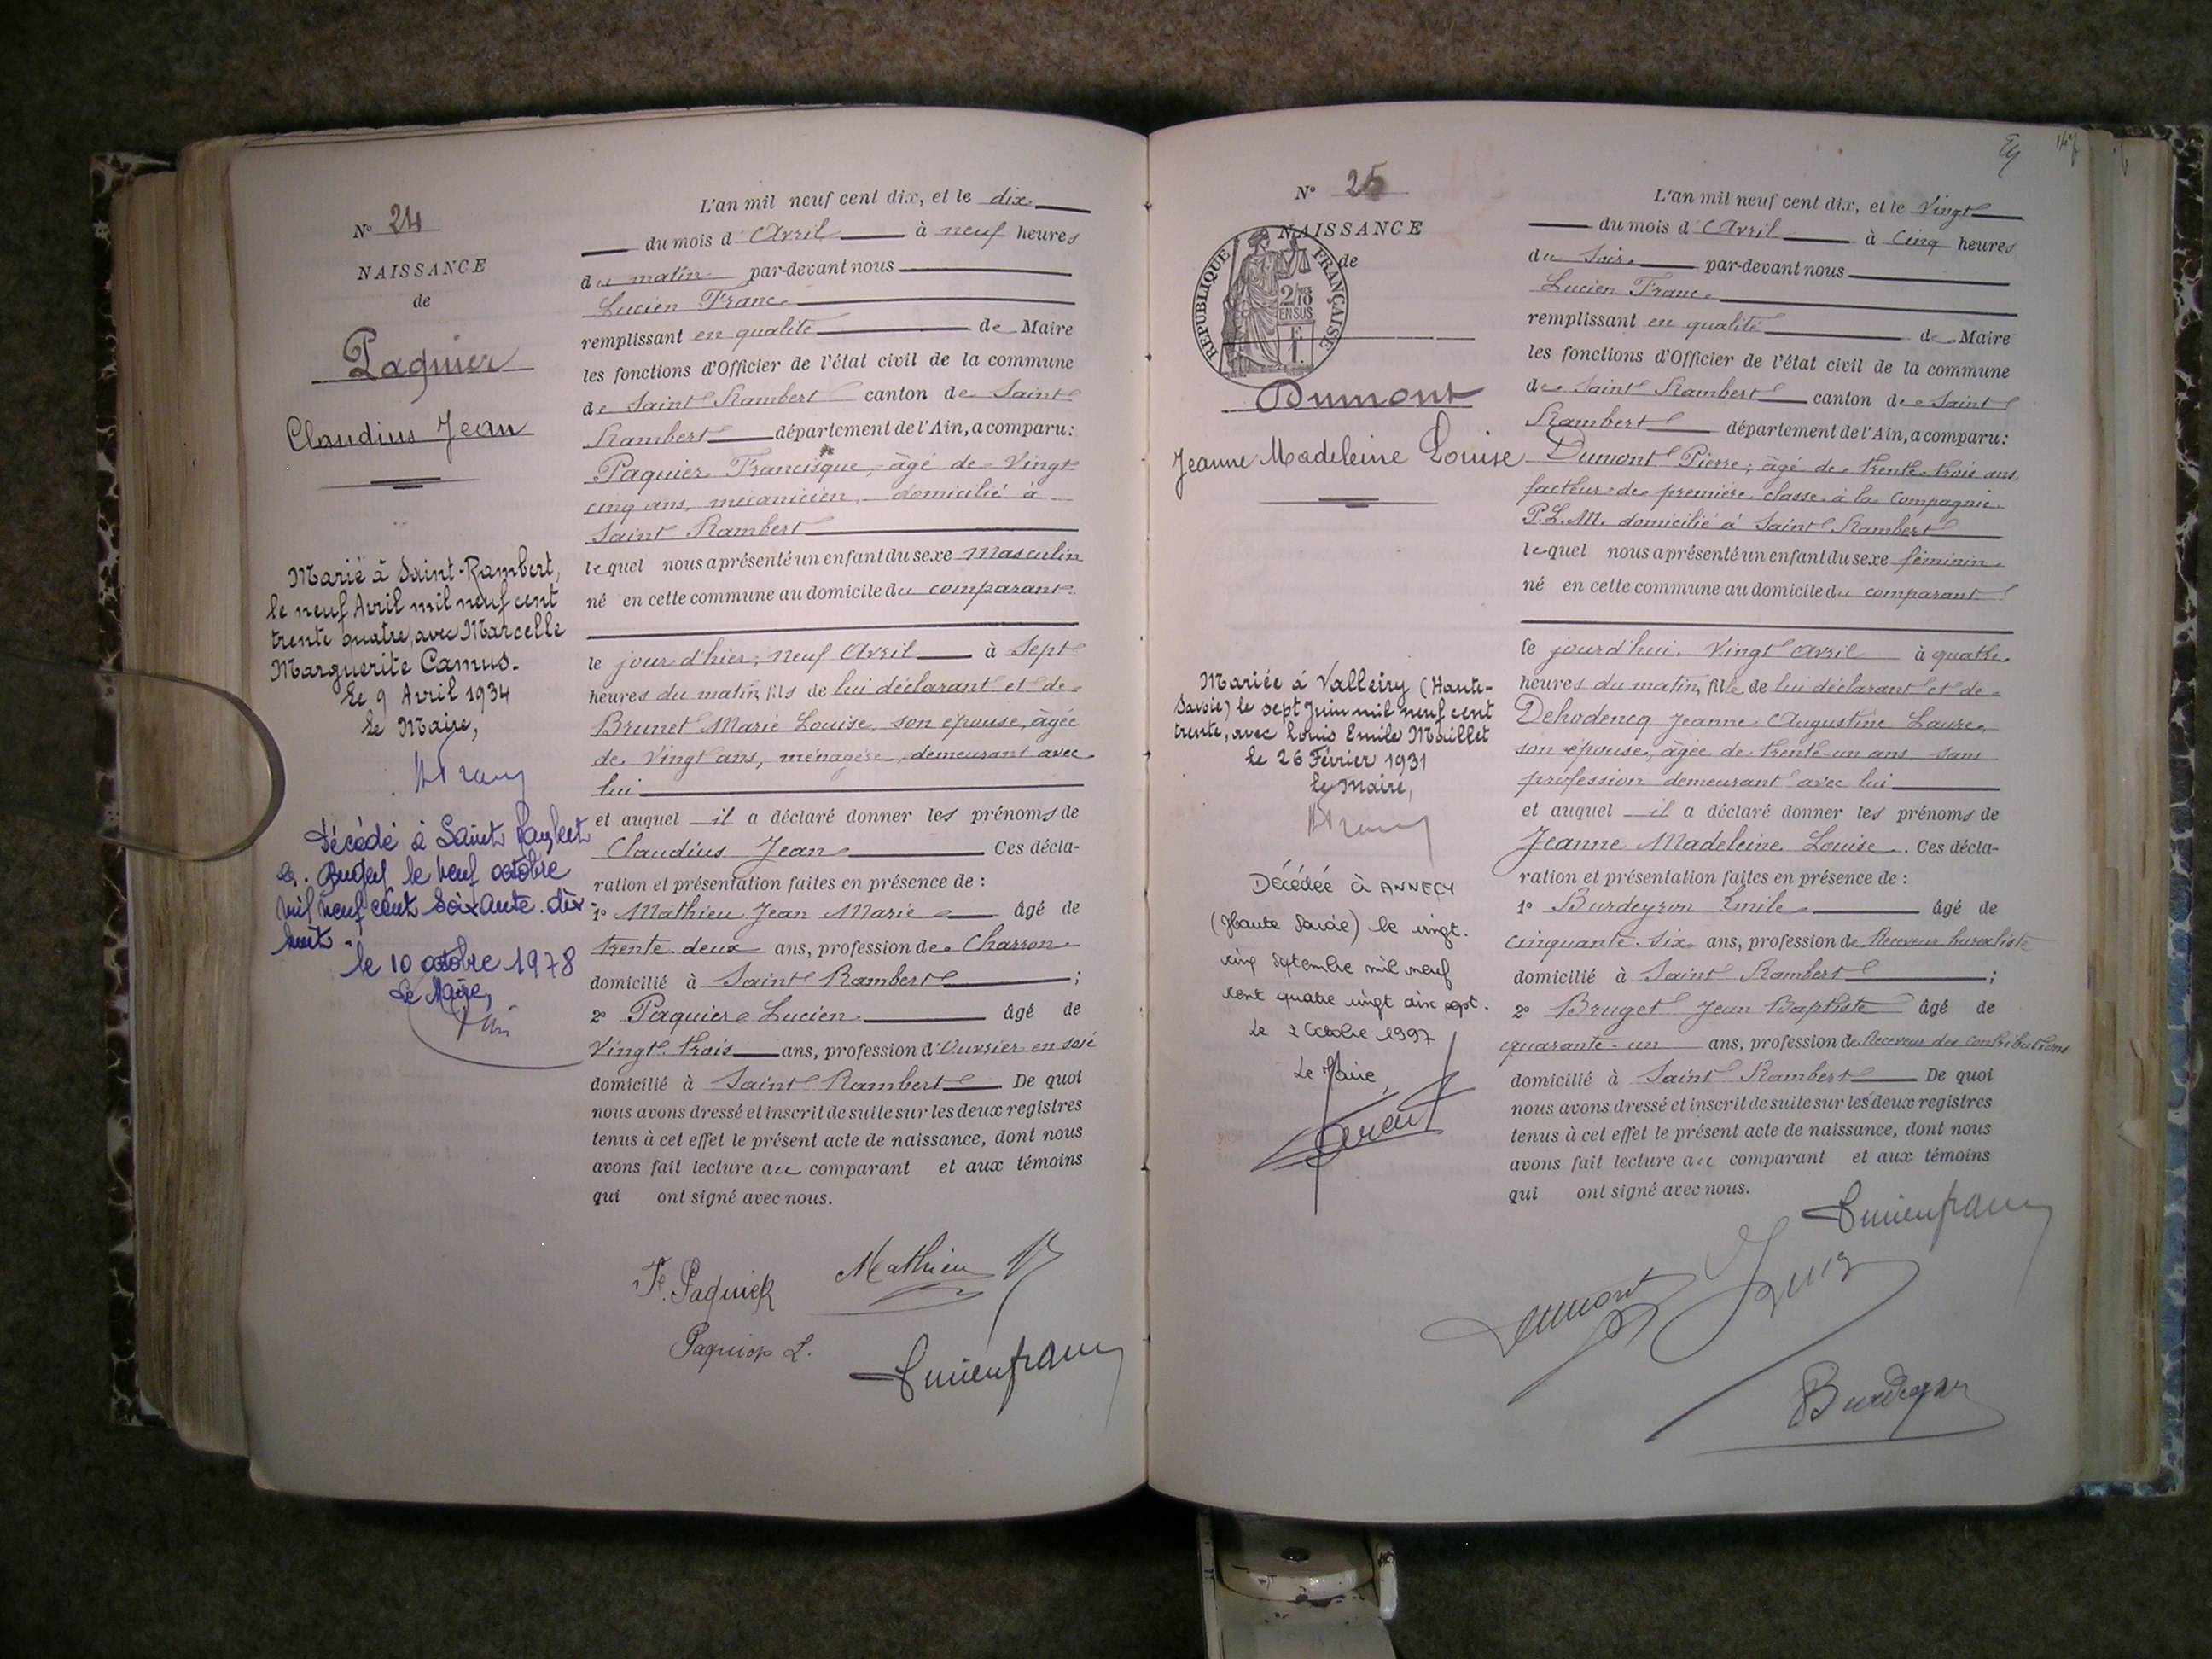 N° 24
NAISSANCE
de
Paquier
Claudius Jean
Marié à Saint-Rambert,
le neuf Avril mil neuf cent
trente quatre, avec Marcelle
Marguerite Camus.
Le 9 Avril 1934
Le Maire,
Décédé à Saint Rambert
en Bugey le neuf octobre
mil neuf cent soixante-dix
huit.
le 10 octobre 1978
Le Maire,
L'an mil neuf cent dix, et le dix
du mois d'Avril à neuf heures
du matin par-devant nous
Lucien Franc
remplissant en qualité de Maire
les fonctions d'Officier de l'état civil de la commune
de Saint Rambert canton de Saint
Rambert département de l'Ain, a comparu:
Paquier Francisque, âgé de Vingt
cinq ans, mécanicien, domicilié à
Saint Rambert
lequel nous a présenté un enfant du sexe Masculin
né en cette commune au domicile du comparant
le jour d'hier, neuf Avril à Sept
heures du matin, fils de lui déclarant et de
Brunet Marie Louise, son épouse, âgée
de Vingt ans, ménagère, demeurant avec
lui
et auquel il a déclaré donner les prénoms de
Claudius Jean Ces décla-
ration et présentation faites en présence de :
1° Mathieu Jean Marie âgé de
trente-deux ans, profession de Charron
domicilié à Saint Rambert ;
2° Paquier Lucien âgé de
Vingt-trois ans, profession d'Ouvrier en soie
domicilié à Saint Rambert De quoi
nous avons dressé et inscrit de suite sur les deux registres
tenus à cet effet le présent acte de naissance, dont nous
avons fait lecture au comparant et aux témoins
qui ont signé avec nous.
F. Paquier Mathieu
Paquier L. Lucien franc
N° 25
NAISSANCE
de
REPUBLIQUE FRANÇAISE
2/10
EN SUS
Dumont
Jeanne Madeleine Louise
Mariée à Valleiry (Haute-
Savoie) le sept Juin mil neuf cent
trente, avec Louis Emile Maillet
Le 26 Février 1931
Le Maire,
Décédée à ANNECY
(Haute Savoie) le vingt.
cinq Septembre mil neuf
cent quatre vingt dix sept.
Le 2 Octobre 1997
Le Maire,
L'an mil neuf cent dix, et le Vingt
du mois d'Avril à Cinq heures
du Soir par-devant nous
Lucien Franc
remplissant en qualité de Maire
les fonctions d'Officier de l'état civil de la commune
de Saint Rambert canton de Saint
Rambert département de l'Ain, a comparu:
Dumont Pierre, âgé de trente-trois ans,
facteur de première classe à la Compagnie
P.L.M. domicilié à Saint Rambert
lequel nous a présenté un enfant du sexe féminin
né en cette commune au domicile du comparant
le jourd'hui, Vingt Avril à quatre
heures du matin, fille de lui déclarant et de
Dehodencq Jeanne Augustine Laure,
son épouse, âgée de trente-un ans sans
profession demeurant avec lui
et auquel il a déclaré donner les prénoms de
Jeanne Madeleine Louise. Ces décla-
ration et présentation faites en présence de :
1° Burdeyron Emile âgé de
cinquante-six ans, profession de Receveur buraliste
domicilié à Saint Rambert ;
2° Bruget Jean Baptiste âgé de
quarante-un ans, profession de Receveur des contributions
domicilié à Saint Rambert De quoi
nous avons dressé et inscrit de suite sur les deux registres
tenus à cet effet le présent acte de naissance, dont nous
avons fait lecture au comparant et aux témoins
qui ont signé avec nous.
Lucien franc
Dumont